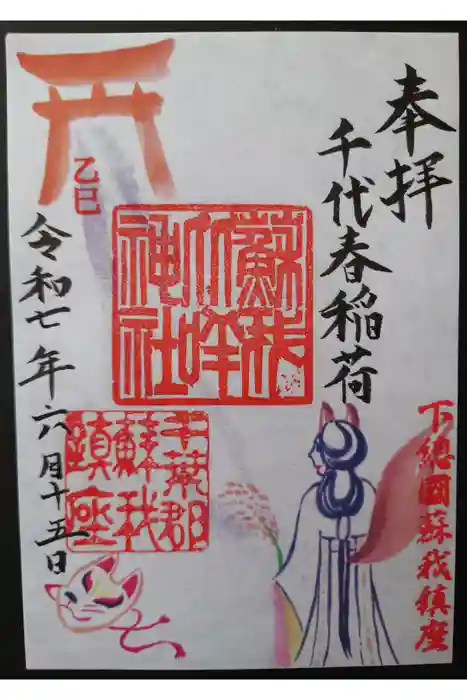 奉拝
千代春稲荷
下總國蘇我鎮座
蘇我
比咩
神社
乙巳
千葉郡
蘇我
鎮座
令和七年六月十五日